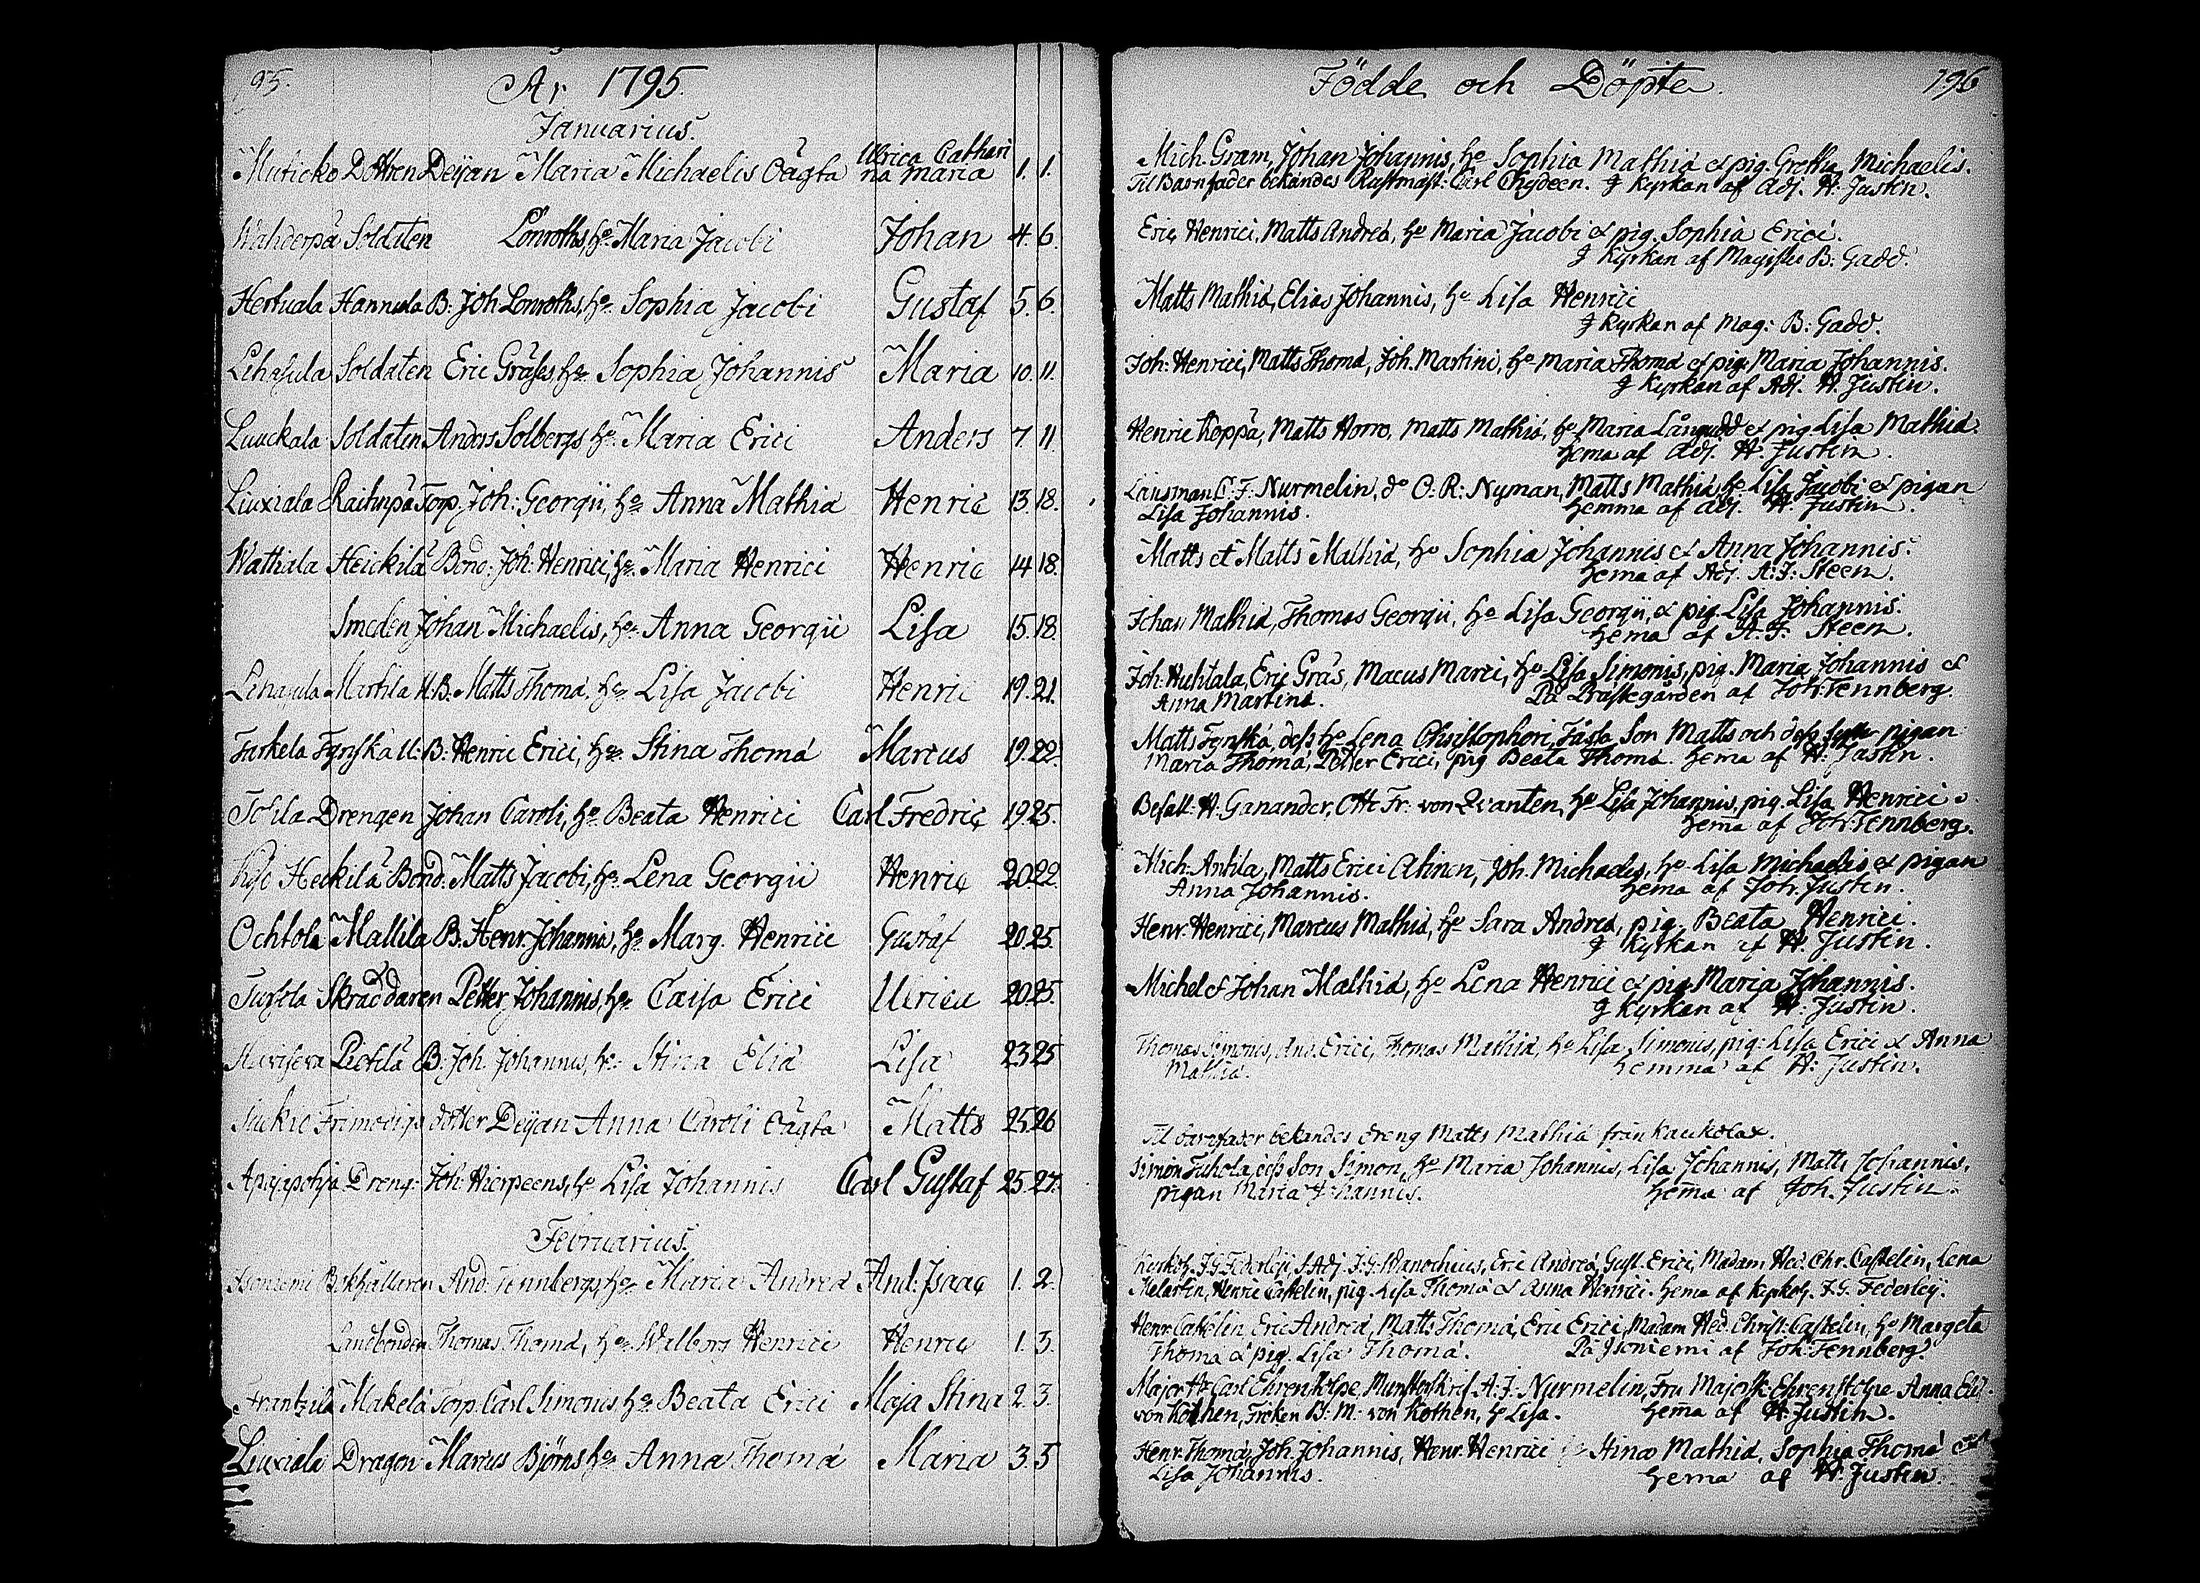 95.
År 1795.
Januarius.
Muticko Dottren Deijan Maria Michaelis Oägta Ulrica Cathari
na Maria 1. 1.
Wahderpä Soldaten Lönroths, h: Maria Jacobi Johan 4. 6.
Hertuala Hannula B: Joh Lonroths, h: Sophia Jacobi Gustaf 5. 6.
Lihasula Soldaten Eric Gräses h: Sophia Johannis Maria 10. 11.
Luuckala Soldaten Anders Solbergs, h: Maria Erici Anders 7 11
Liuxiala Raihnpä Torp. Joh: Georgii, h: Anna Mathiæ Henric 13. 18.
Wathiala Heickilä Bond: Joh: Henrici, h: Maria Henrici Henric 14 18.
Smeden Johan Michaelis, h: Anna Georgii Lisa 15. 18.
Lihasula Marttila U.B. Matts Thomæ, h: Lisa Jacobi Henric 19. 21.
Tarkela Tynskä U: B: Henric Erici, h: Stina Thomæ Marcus 19. 22.
Tohla Drengen Johan Caroli, h: Beata Henrici Carl Fredric 19. 25.
Heckilä Bond: Matts Jacobi, h: Lena Georgii Henric 20. 22.
Ochtola Mallila B. Henr. Johannis, h: Marg. Henrici Gustaf 20. 25.
Turstla Skräddaren Petter Johannis, h: Caisa Erici Ulrica 20. 25.
Pietilä B. Joh. Johannis, h: Stina Eliæ Lisa 23. 25
dotter Deijan Anna Caroli Oägta Matts 25. 26
Dreng: Joh: Hierpeens, h: Lisa Johannis Carl Gustaf 25. 27.
Februarius.
Isoniemi Bokhållaren And. Tennbergs, h: Maria Andreæ And: Isaac 1. 2.
Landbonden Thomas Thomæ, h: Walborg Henrici Henric 1. 3.
Frantzila Makelä Torp. Carl Simonis h: Beata Erici Maja Stina 2. 3.
Liuxiala Dragon Marcus Björns h: Anna Thomæ Maria 3. 5
Födde och Döpte. 196
Mich. Gram, Johan Johannis, h: Sophia Mathiæ & pig. Gretha Michaelis.
Til Barnfader bekändes Rustmäst: Carl Chydeen. J Kyrkan af Adj. H: Justin.
Eric Henrici, Matts Andreæ, h: Maria Jacobi & pig. Sophia Erici.
J Kyrkan af Magister B: Gadd.
Matts Mathiæ, Elias Johannis, h: Lisa Henrici
J Kyrkan af Mag: B: Gadd.
Joh: Henrici, Matts Thomæ, Joh. Martini, h: Maria Thomæ & pig. Maria Johannis.
J Kyrkan af Adj. H. Justin.
Henric Koppä, Matts Horro, Matts Mathiæ, h: Maria & pig. Lisa Mathiæ.
hema af Adj. H. Justin.
Länsman C: F: Nurmelin, do O: R: Nyman, Matts Mathiæ, h: Lisa Jacobi & pigan
Lisa Johannis. hemma af Adj. H. Justin.
Matts et Matts Mathiæ, h: Sophia Johannis & Anna Johannis.
hema af Adj. A: J: Steen.
Johan Mathiæ, Thomas Georgii, h: Lisa Georgii, & pig. Lisa Johannis.
hema af A. J: Steen.
Joh: Huhtala, Eric Gräs, Macus Marci, h: Lisa Simonis, pig. Maria Johannis &
Anna Martini. På Prästegården af Joh: Tennberg.
Matts Tynskä, dess h: Lena Christophori, Son Matts och dess pigan
Maria Thomæ, Petter Erici, pig Beata Thomæ. hema af H: Justin.
Befall: H. Ganander, Otto Fr: von Qvanten, h: Lisa Johannis, pig. Lisa Henrici
hema af Joh: Tennberg.
Mich. Anttila, Matts Erici Alinen, Joh. Michaelis, h: Lisa Michaelis & pigan
Anna Johannis. hema af Joh. Justin.
Henr. Henrici, Marcus Mathiæ, h: Sara Andreæ, pig. Beata Henrici.
J Kyrkan af H: Justin.
Michel & Johan Mathiæ, h: Lena Henrici & pig. Maria Johannis.
J Kyrkan af H: Justin.
Thomas Simonis, And. Erici, Thomas Mathiæ, h: Lisa Simonis, pig: Lisa Erici & Anna
Mathiæ. hemma af H: Justin.
Til barnfader bekändes dreng Matts Mathiæ från Kaukola.
Simon Tuhola, dess Son Simon, h: Maria Johannis, Lisa Johannis, Matts Johannis,
pigan Maria Johannis. hema af Joh. Justin.
Kyrkoh. J. G. Federley, S. Adj. J. G. Wanochius, Eric Andreæ, Gust. Erici, Madam Hed. Chr. Castelin, Lena
Melartin, Henric Castelin, pig. Lisa Thomæ & Anna Henrici. hema af Kyrkoh. J. G. Federley.
Henr. Castelin, Eric Andreæ, Matts Thomæ, Eric Erici, Madam Hed. Christ. Castelin, h: Margeta
Thomæ & pig. Lisa Thomæ. På Isoniemi af Joh: Tennberg.
Major H: Carl Ehrenstolpe, Munsterskrif. A. J. Nurmelin, Fru Majorsk. Ehrenstolpe Anna Elis.
von Köthen, Fröken B: M: von Köthen, h: Lisa. hema af H: Justin.
Henr. Thomæ, Joh. Johannis, Henr. Henrici Stina Mathiæ, Sophia Thomæ
Lisa Johannis. hema af H. Justin.